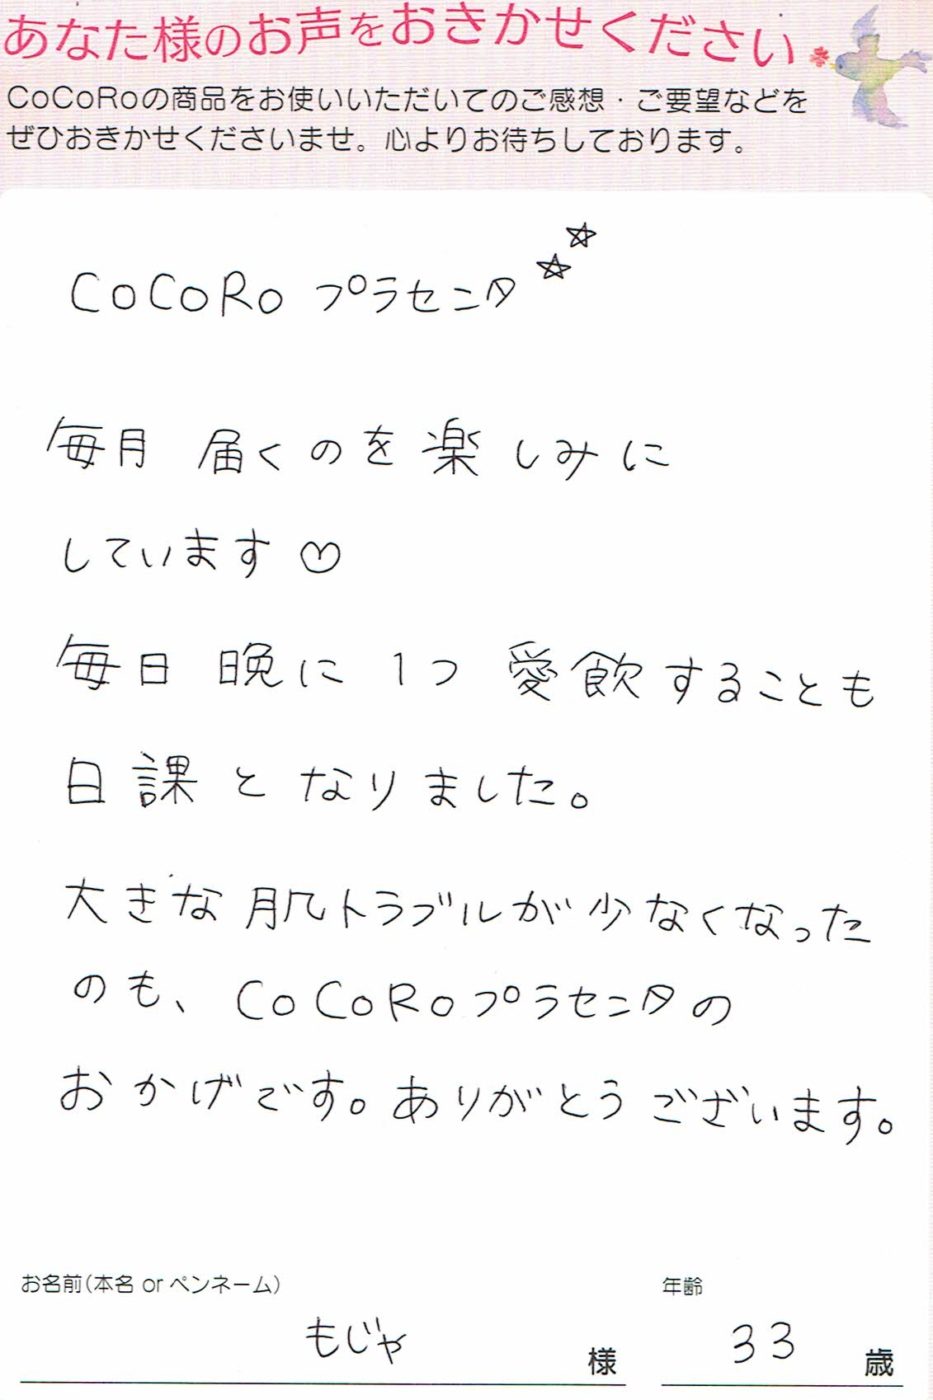 あなた様のお声をおきかせください
CoCoRoの商品をお使いいただいてのご感想・ご要望などを
ぜひおきかせくださいませ。心よりお待ちしております。
CoCoRo プラセンタ☆☆
毎月 届くのを楽しみに
しています♡
毎日 晩に 1つ 愛飲することも
日課となりました。
大きな肌トラブルが少なくなった
のも、CoCoRoプラセンタの
おかげです。ありがとうございます。
お名前(本名 or ペンネーム) 年齢
もじゃ 様 33 歳